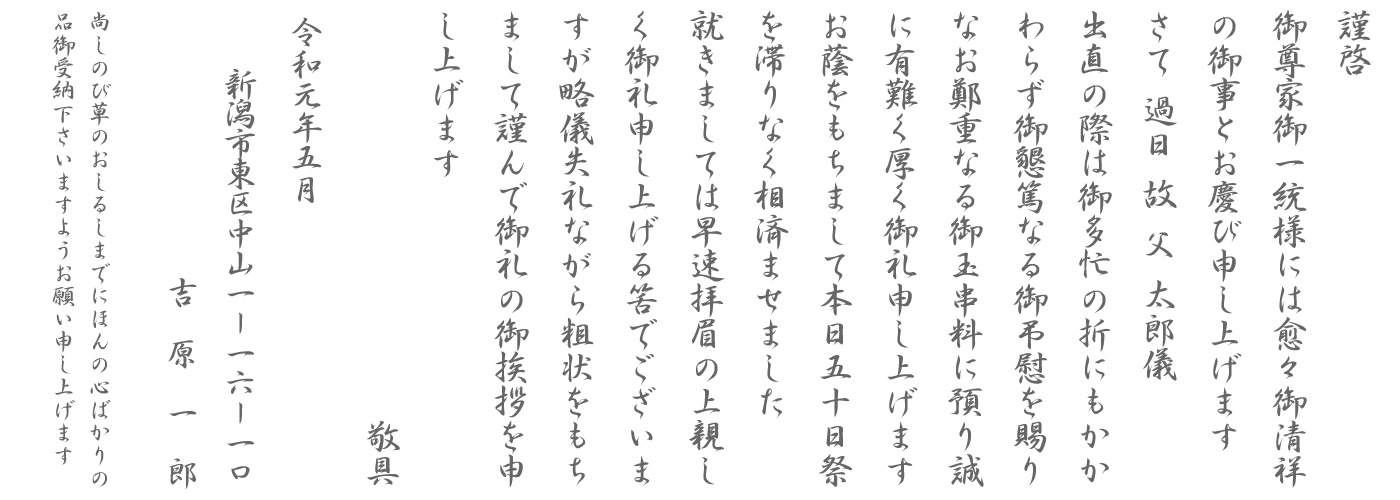 謹啓
御尊家御一統様には愈々御清祥
の御事とお慶び申し上げます
さて 過日 故 父 太郎儀
出直の際は御多忙の折にもかか
わらず御懇篤なる御弔慰を賜り
なお鄭重なる御玉串料に預り誠
に有難く厚く御礼申し上げます
お蔭をもちまして本日五十日祭
を滞りなく相済ませました
就きましては早速拝眉の上親し
く御礼申し上げる筈でございま
すが略儀失礼ながら粗状をもち
まして謹んで御礼の御挨拶を申
し上げます
敬具
令和元年五月
新潟市東区中山一ー一六ー一口
吉原一郎
尚しのび草のおしるしまでにほんの心ばかりの
品御受納下さいますようお願い申し上げます